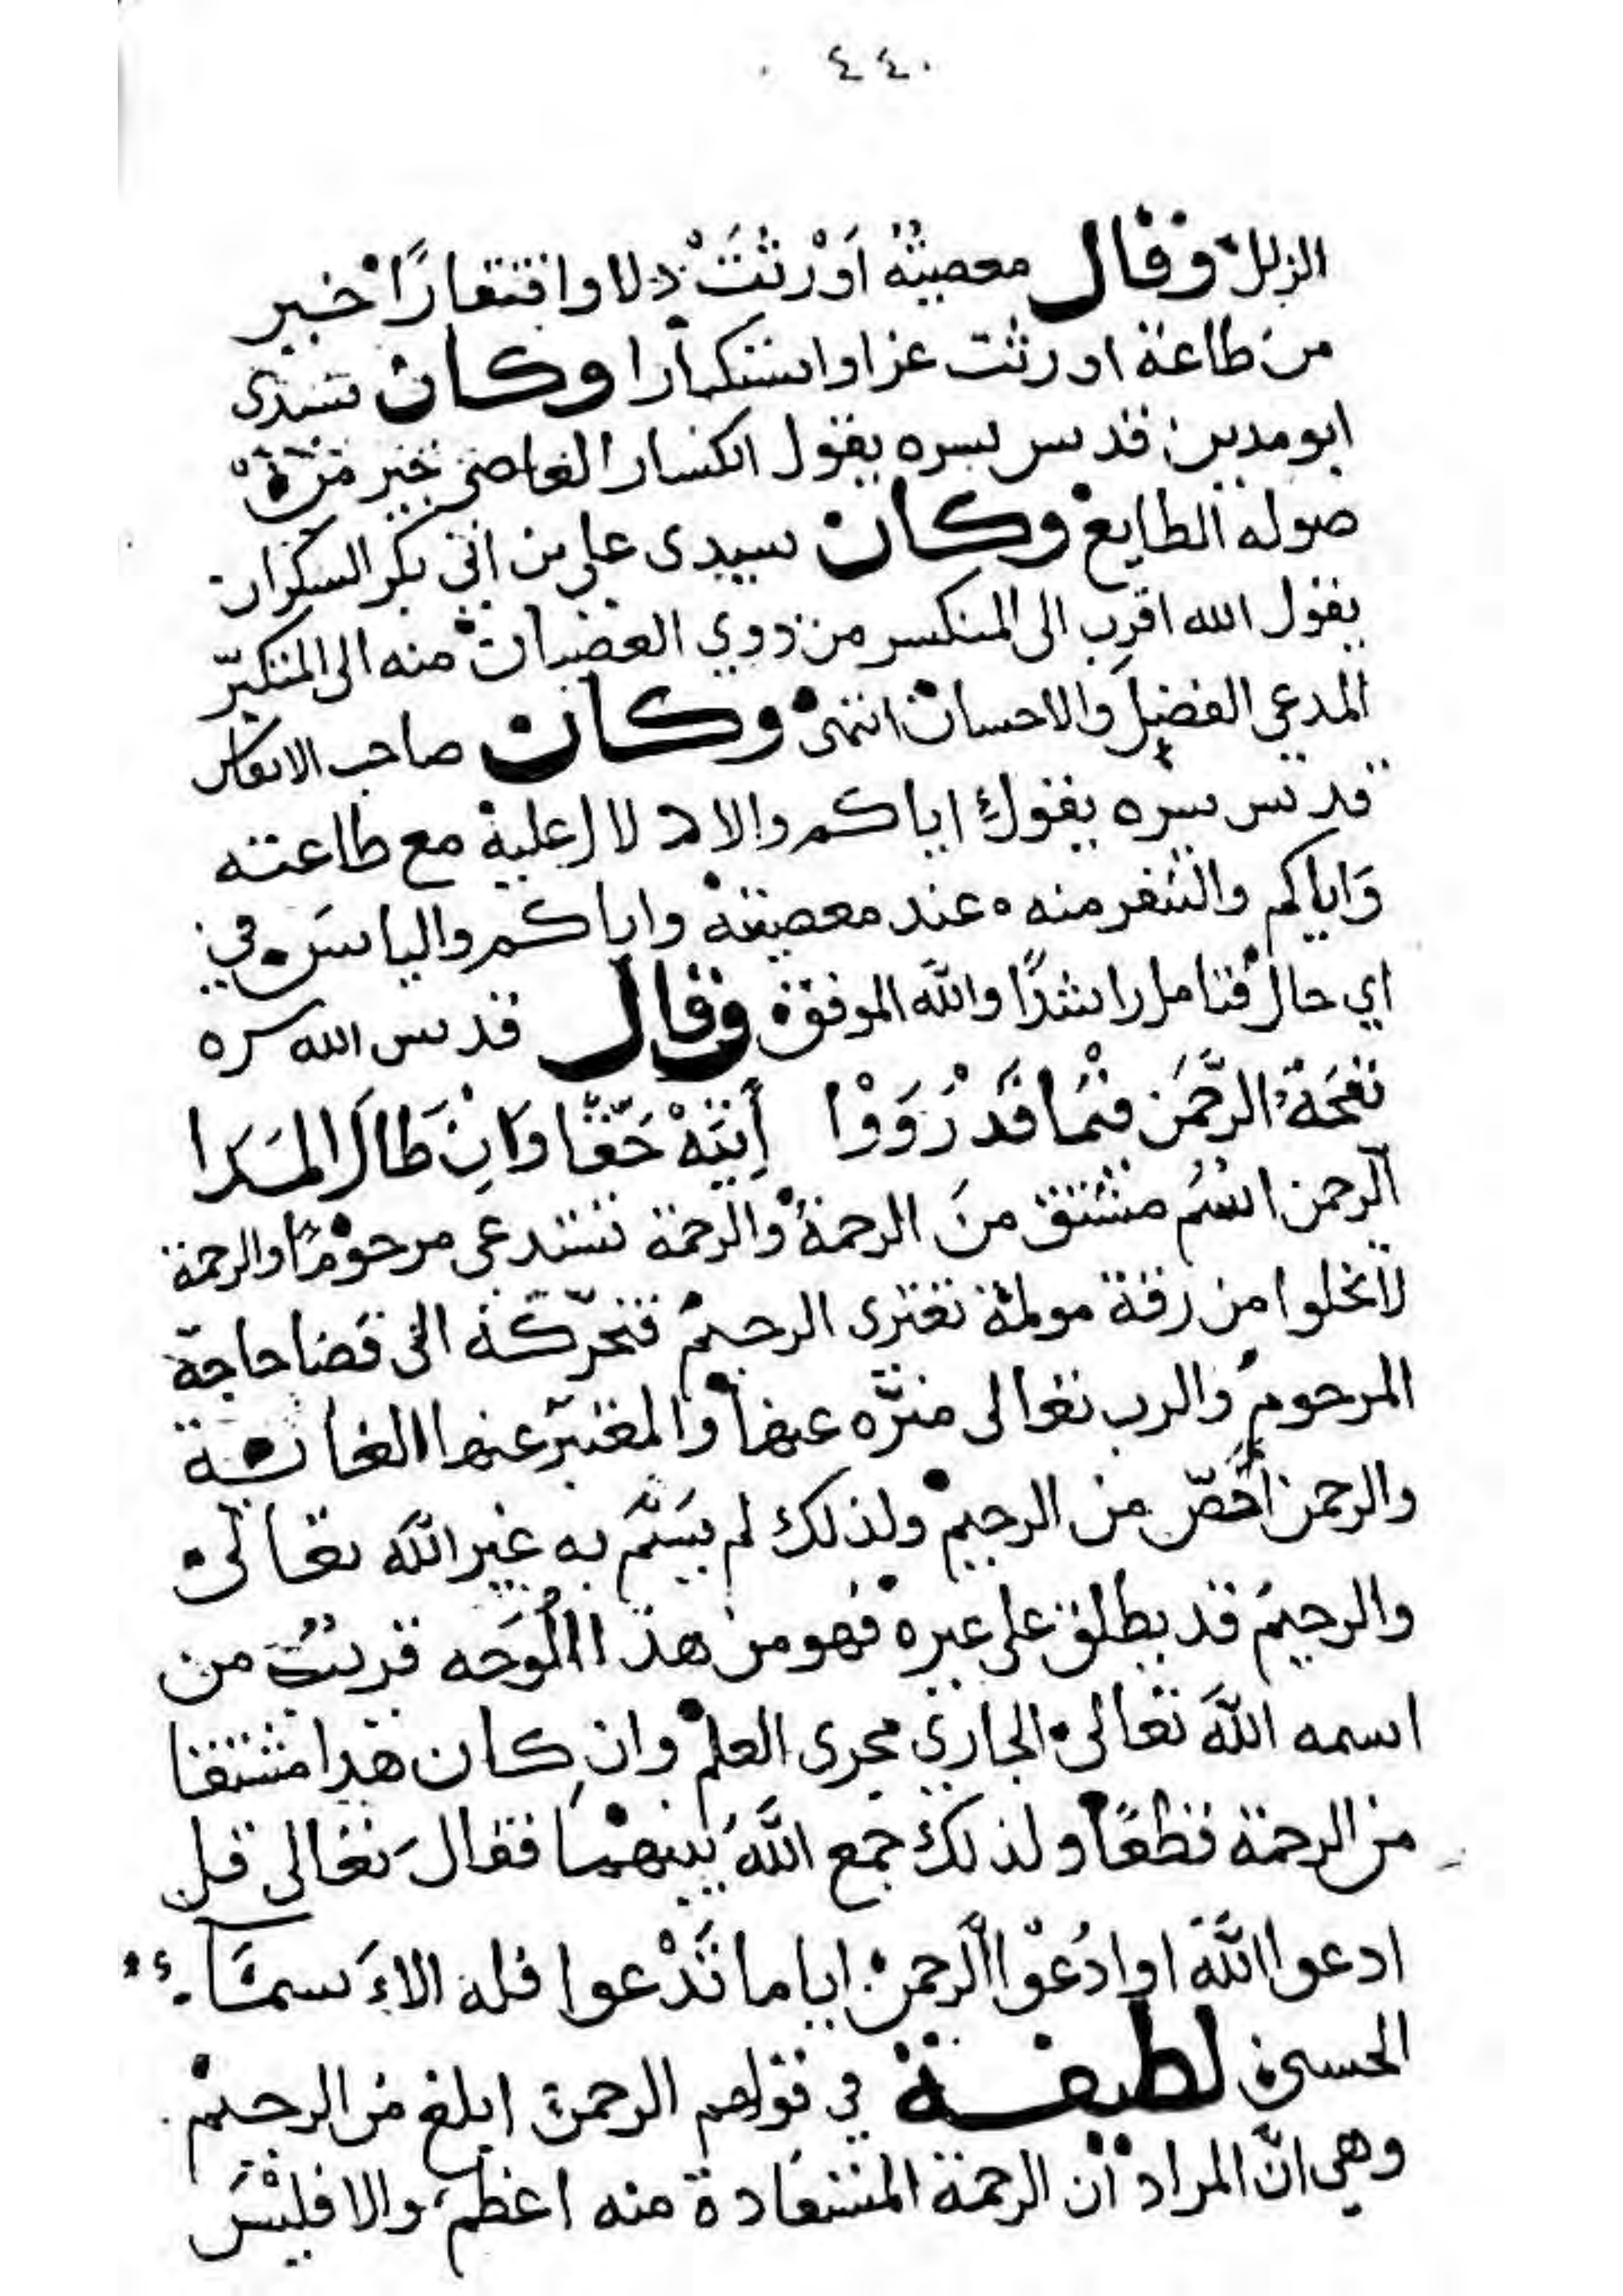 ٤٤٠
الزلل وقال معصيةٌ أَوْرَثَتْ ذلا وافتقارًا خير
من طاعة اورثت عزا واستكبارا وكان سيدى
ابومدين قدس سره يقول انكسار العاصى خير من
صولة الطايع وكان سيدى علي بن ابى بكر السكران
يقول الله اقرب الى المنكسر من ذوي العصيان منه الى المتكبّر
المدعي الفضل والاحسان انتهى وكان صاحب الانفاس
قدس سره يقول اياكم والادلال عليه مع طاعته
وَاياكم والتنفر منه عند معصيته واياكم والياسَ في
اي حال فتامل راشدًا والله الموفق وقال قدس الله سره
نَفْحَةُ الرَّحْمَن فِيْمَا قَدْ رَوَوْا أَتِيَةْ حَقًّا وَاِنْ طَالَ المَدَا
الرحمن اسْمُ مشتق منَ الرحمة والرحمة تستدعى مرحوْمًا والرحمة
لاتخلوا من رقة مولمة تعترى الرحيم فتحرّكه الى قضا حاجة
المرحوم والرب تعالى منزّه عنها والمعتبر عنها الغاية
والرحمن أخصّ من الرحيم ولذلك لم يسَمَّ به غير الله تعالى
والرحيم قد يطلق على غيره فهو من هذا الوَجه قريبٌ من
اسمه اللّه تعالى الجاري مجرى العلم وان كان هذا مشتقا
من الرحمة قطعًا ولذلك جمع اللّهُ بينهما فقال تعالى قل
ادعوا اللّه اوادْعوا الرحمن اياما تَدْعوا فله الاَسمَآء
الحسنى لطيفة في قولهم الرحمن ابلغ من الرحيم
وهي انّ المراد ان الرحمة المستفادة منه اعظم والا فليْسَ